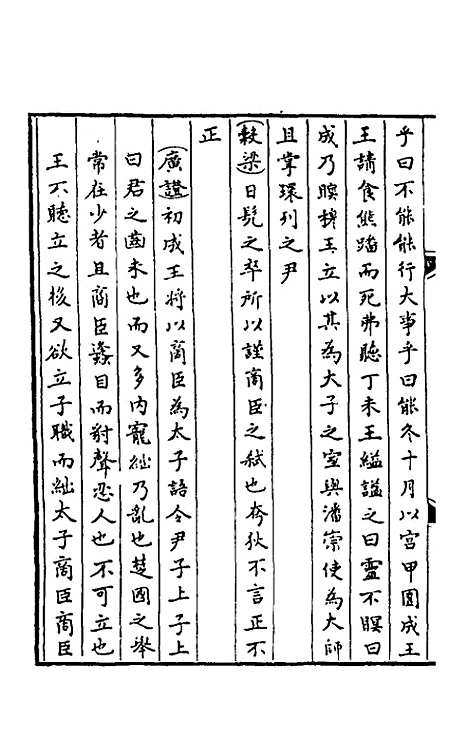 乎曰不能能行大事乎曰能冬十月以宮甲圍成王
王請食熊蹯而死弗聽丁未王縊諡之曰靈不瞑曰
成乃瞑穆王立以其為大子之室與潘崇使為大師
且掌環列之尹
穀梁日髡之卒所以謹商臣之弒也夷狄不言正不
正
廣證初成王將以商臣為太子語令尹子上子上
曰君之齒未也而又多內寵絀乃亂也楚國之舉
常在少者且商臣蠭目而豺聲忍人也不可立也
王不聽立之後又欲立子職而絀太子商臣商臣